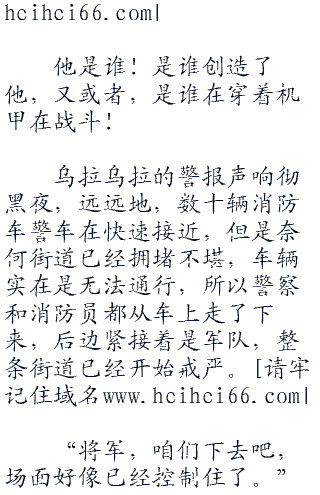 hcihci66.com|
他是谁！是谁创造了
他，又或者，是谁在穿着机
甲在战斗！
乌拉乌拉的警报声响彻
黑夜，远远地，数十辆消防
车警车在快速接近，但是奈
何街道已经拥堵不堪，车辆
实在是无法通行，所以警察
和消防员都从车上走了下
来，后边紧接着是军队，整
条街道已经开始戒严。[请牢
记住域名www.hcihci66.com|
“将军，咱们下去吧，
场面好像已经控制住了。”